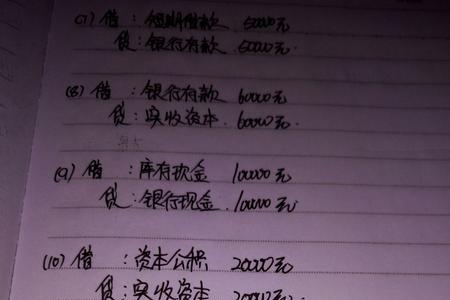 (7) 借：短期借款 50000元
贷：银行存款 50000元.
(8) 借：银行存款 60000元
贷：实收资本 60000元.
(9) 借：库存现金 10000元
贷：银行现金 10000元
(10) 借：资本公积 20000元
贷：实收资本 20000元